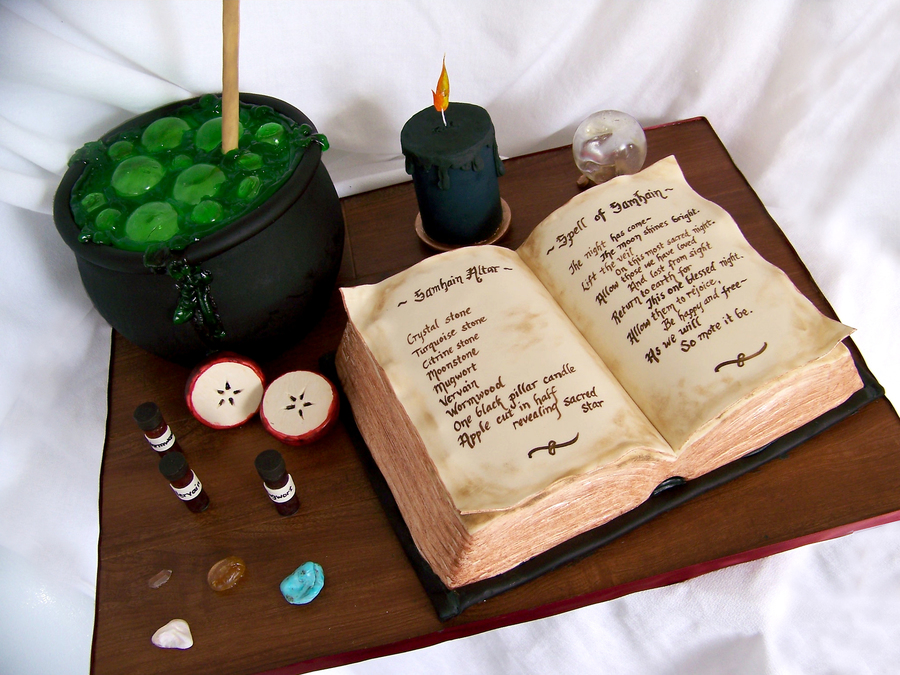 ~ Samhain Altar ~
Crystal stone
Turquoise stone
Citrine stone
Moonstone
Mugwort
Vervain
Wormwood
One black pillar candle
Apple cut in half
revealing sacred
star
~ Spell of Samhain ~
The night has come~
The moon shines bright.
Lift the veil
on this most sacred night~
Allow those we have loved
And lost from sight.
Return to earth for
This one blessed night.
Allow them to rejoice,
Be happy and free~
As we will
So mote it be.